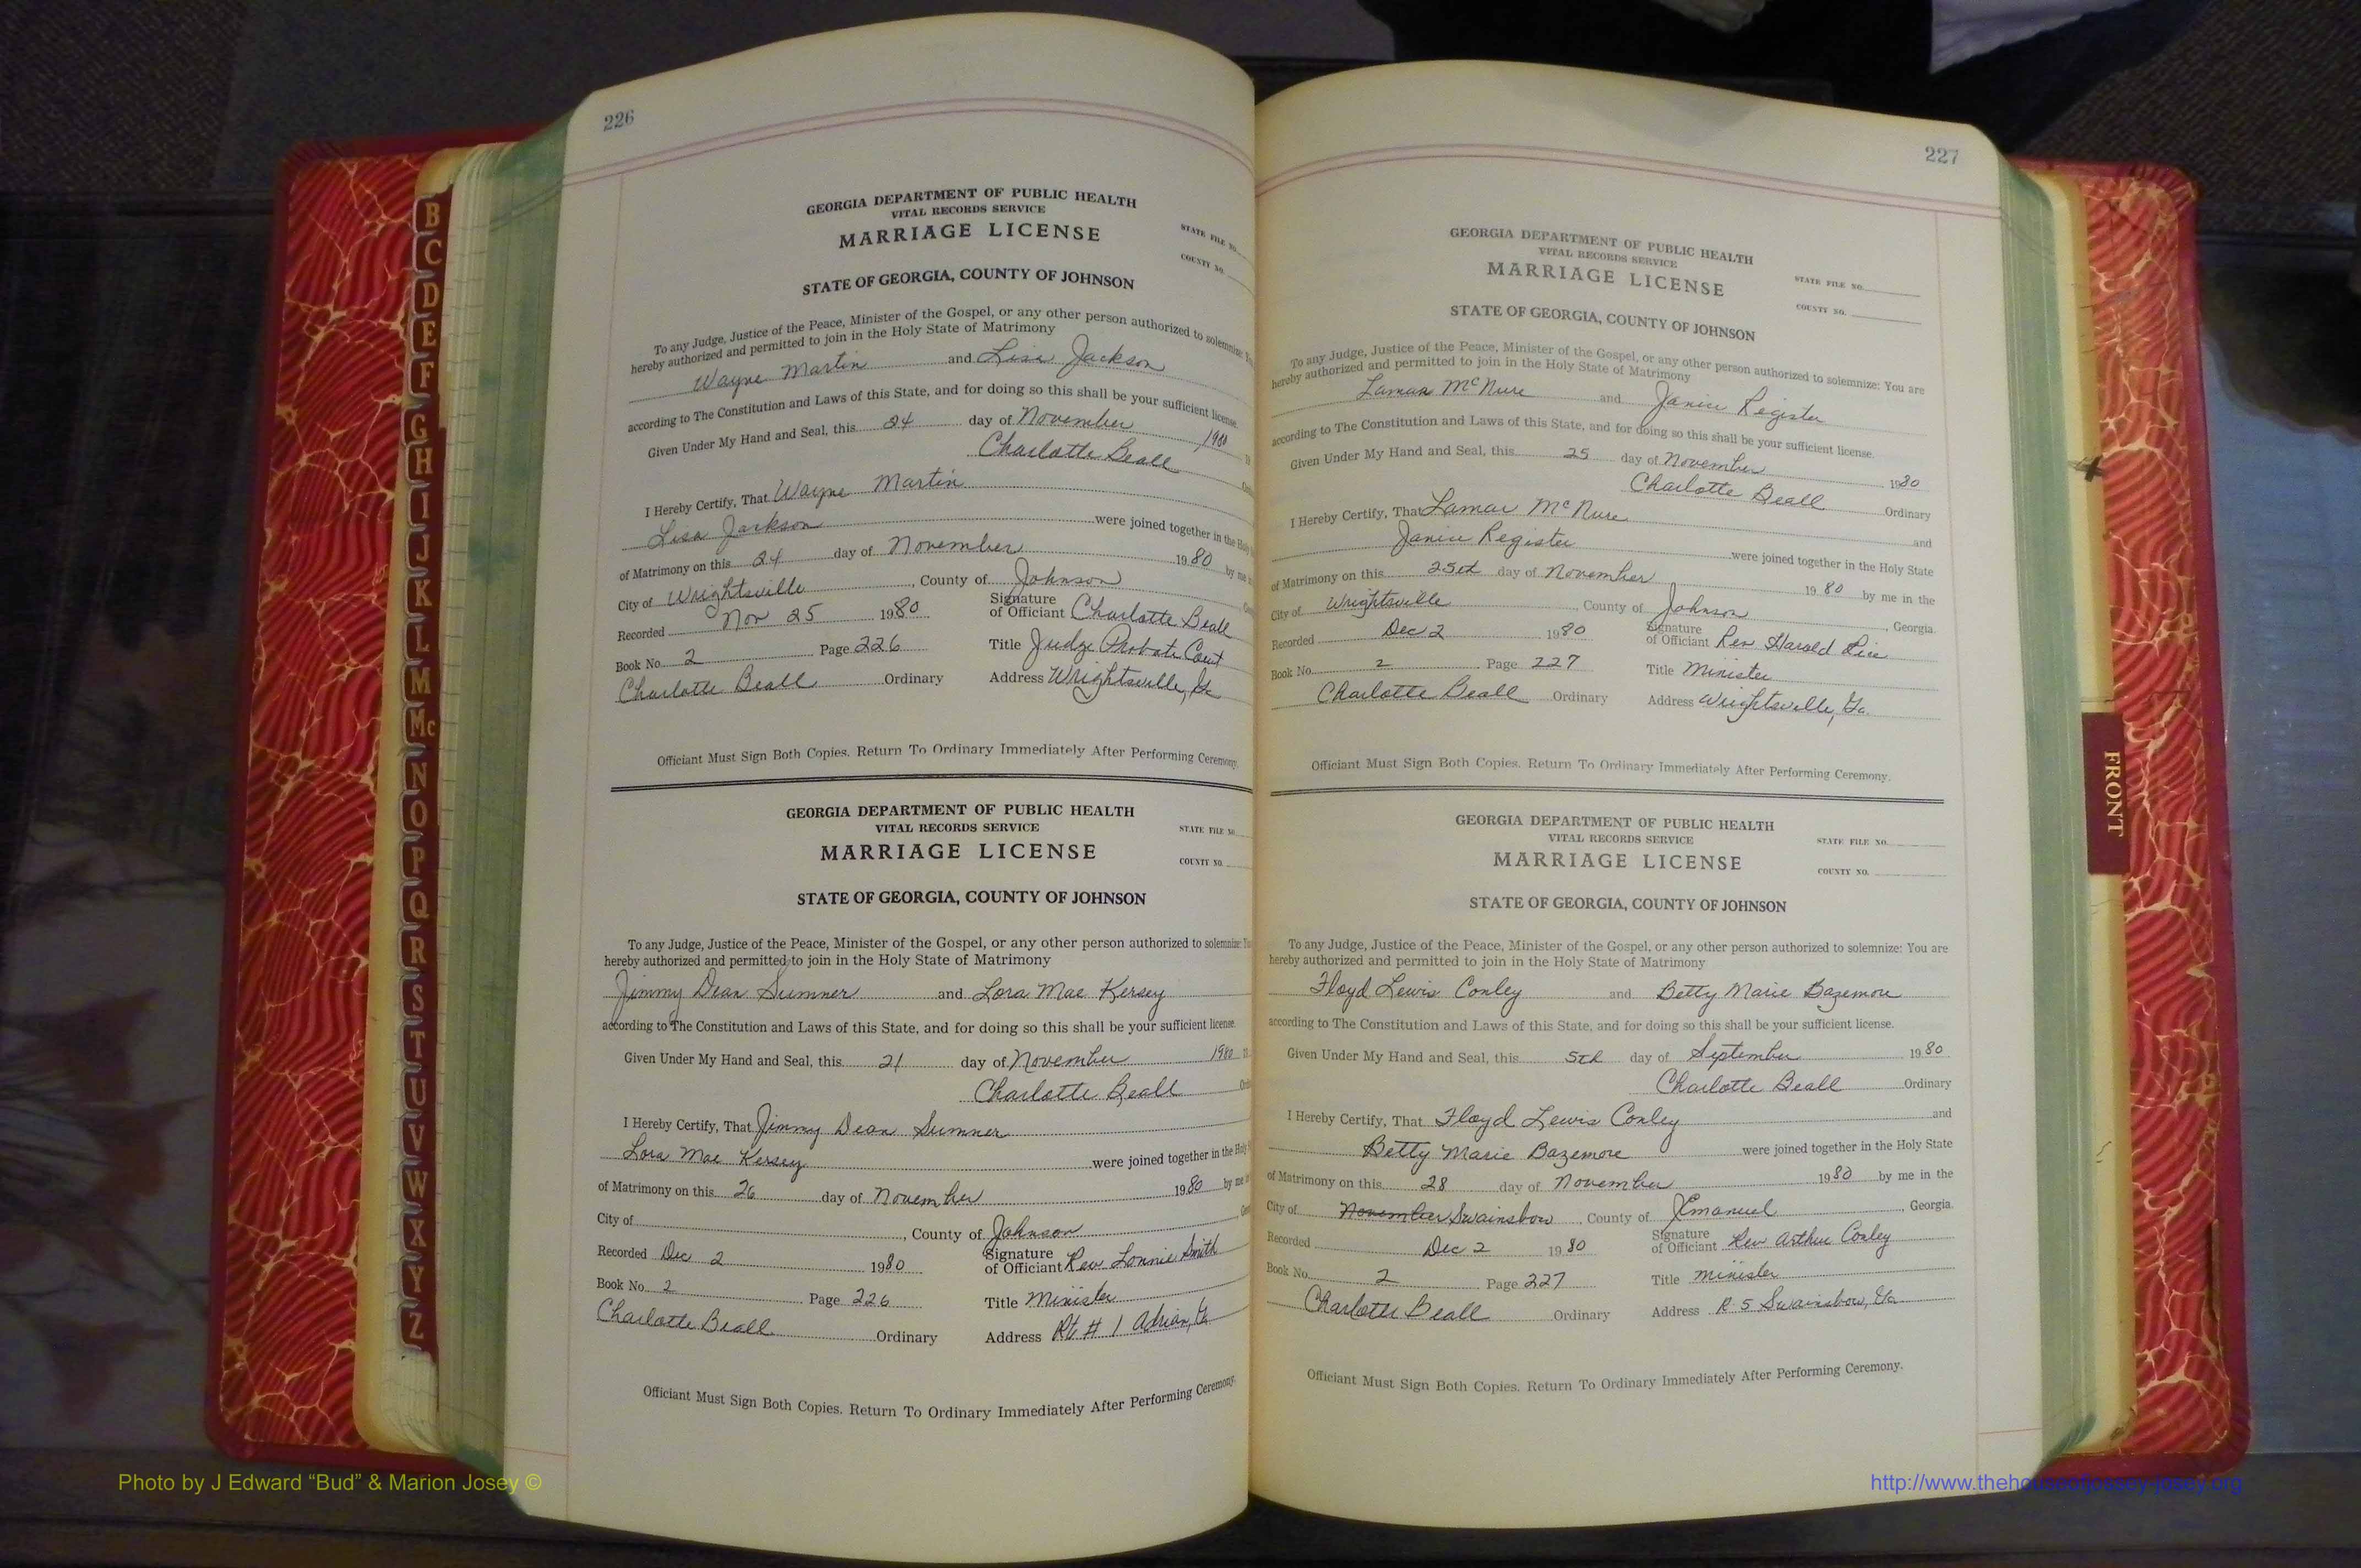 226
GEORGIA DEPARTMENT OF PUBLIC HEALTH
VITAL RECORDS SERVICE
MARRIAGE LICENSE
STATE FILE NO.
COUNTY NO.
STATE OF GEORGIA, COUNTY OF JOHNSON
To any Judge, Justice of the Peace, Minister of the Gospel, or any other person authorized to solemnize:
hereby authorized and permitted to join in the Holy State of Matrimony
Wayne Martin and Lisa Jackson
according to The Constitution and Laws of this State, and for doing so this shall be your sufficient license.
Given Under My Hand and Seal, this 24 day of November 1980
Charlotte Beall
I Hereby Certify, That Wayne Martin
Lisa Jackson were joined together in the
of Matrimony on this 24 day of November 1980 by me
City of Wrightsville, County of Johnson
Recorded Nov 25 1980 Signature of Officiant Charlotte Beall
Book No. 2 Page 226 Title Judge Probate Court
Charlotte Beall Ordinary Address Wrightsville, Ga
Officiant Must Sign Both Copies. Return To Ordinary Immediately After Performing Ceremony.
GEORGIA DEPARTMENT OF PUBLIC HEALTH
VITAL RECORDS SERVICE
MARRIAGE LICENSE
STATE FILE NO.
COUNTY NO.
STATE OF GEORGIA, COUNTY OF JOHNSON
To any Judge, Justice of the Peace, Minister of the Gospel, or any other person authorized to solemnize:
hereby authorized and permitted to join in the Holy State of Matrimony
Jimmy Dean Sumner and Lora Mae Kersey
according to The Constitution and Laws of this State, and for doing so this shall be your sufficient license.
Given Under My Hand and Seal, this 21 day of November 1980
Charlotte Beall
I Hereby Certify, That Jimmy Dean Sumner
Lora Mae Kersey were joined together in the Holy
of Matrimony on this 26 day of November 1980 by me
City of , County of Johnson
Recorded Dec 2 1980 Signature of Officiant Rev Lonnie Smith
Book No. 2 Page 226 Title Minister
Charlotte Beall Ordinary Address Rt # 1 Adrian, Ga
Officiant Must Sign Both Copies. Return To Ordinary Immediately After Performing Ceremony.
227
GEORGIA DEPARTMENT OF PUBLIC HEALTH
VITAL RECORDS SERVICE
MARRIAGE LICENSE
STATE FILE NO.
COUNTY NO.
STATE OF GEORGIA, COUNTY OF JOHNSON
To any Judge, Justice of the Peace, Minister of the Gospel, or any other person authorized to solemnize: You are
hereby authorized and permitted to join in the Holy State of Matrimony
Lamar McNure and Janice Register
according to The Constitution and Laws of this State, and for doing so this shall be your sufficient license.
Given Under My Hand and Seal, this 25 day of November 1980
Charlotte Beall Ordinary
I Hereby Certify, That Lamar McNure and
Janice Register were joined together in the Holy State
of Matrimony on this 25th day of November 1980 by me in the
City of Wrightsville, County of Johnson, Georgia.
Recorded Dec 2 1980 Signature of Officiant Rev Harold
Book No. 2 Page 227 Title Minister
Charlotte Beall Ordinary Address Wrightsville, Ga.
Officiant Must Sign Both Copies. Return To Ordinary Immediately After Performing Ceremony.
GEORGIA DEPARTMENT OF PUBLIC HEALTH
VITAL RECORDS SERVICE
MARRIAGE LICENSE
STATE FILE NO.
COUNTY NO.
STATE OF GEORGIA, COUNTY OF JOHNSON
To any Judge, Justice of the Peace, Minister of the Gospel, or any other person authorized to solemnize: You are
hereby authorized and permitted to join in the Holy State of Matrimony
Floyd Lewis Conley and Betty Marie Bazemore
according to The Constitution and Laws of this State, and for doing so this shall be your sufficient license.
Given Under My Hand and Seal, this 5th day of September 1980
Charlotte Beall Ordinary
I Hereby Certify, That Floyd Lewis Conley and
Betty Marie Bazemore were joined together in the Holy State
of Matrimony on this 28 day of November 1980 by me in the
City of November Swainsbow, County of Emanuel, Georgia.
Recorded Dec 2 1980 Signature of Officiant Rev Arthur Conley
Book No. 2 Page 227 Title minister
Charlotte Beall Ordinary Address R 5 Swainsbow, Ga
Officiant Must Sign Both Copies. Return To Ordinary Immediately After Performing Ceremony.
B
C
D
E
F
G
H
I
J
K
L
M
Mc
N
O
P
Q
R
S
T
U
V
W
X
Y
Z
FRONT
Photo by J Edward “Bud” & Marion Josey ©
http://www.thehouseofjossey-josey.org